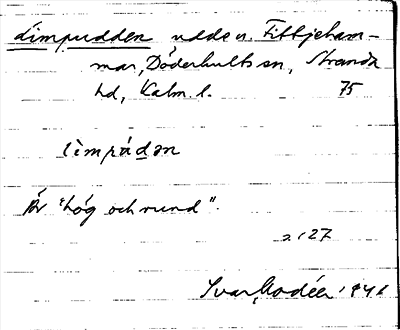 Limpudden udde v. Fittjeham-
mar, Döderhults sn, Stranda
hd, Kalm. l. 75
lìmpúdən
Är "hög och rund".
2:127
Ivar Modéer 1946